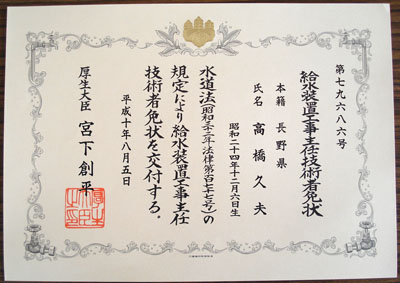 第七九六八六号
給水装置工事主任技術者免状
本籍 長野県
氏名 高橋久夫
昭和二十四年十二月六日生
水道法(昭和三十二年法律第百七十七号)の
規定により給水装置工事主任
技術者免状を交付する。
平成十年八月五日
厚生大臣 宮下創平
厚生大臣之印